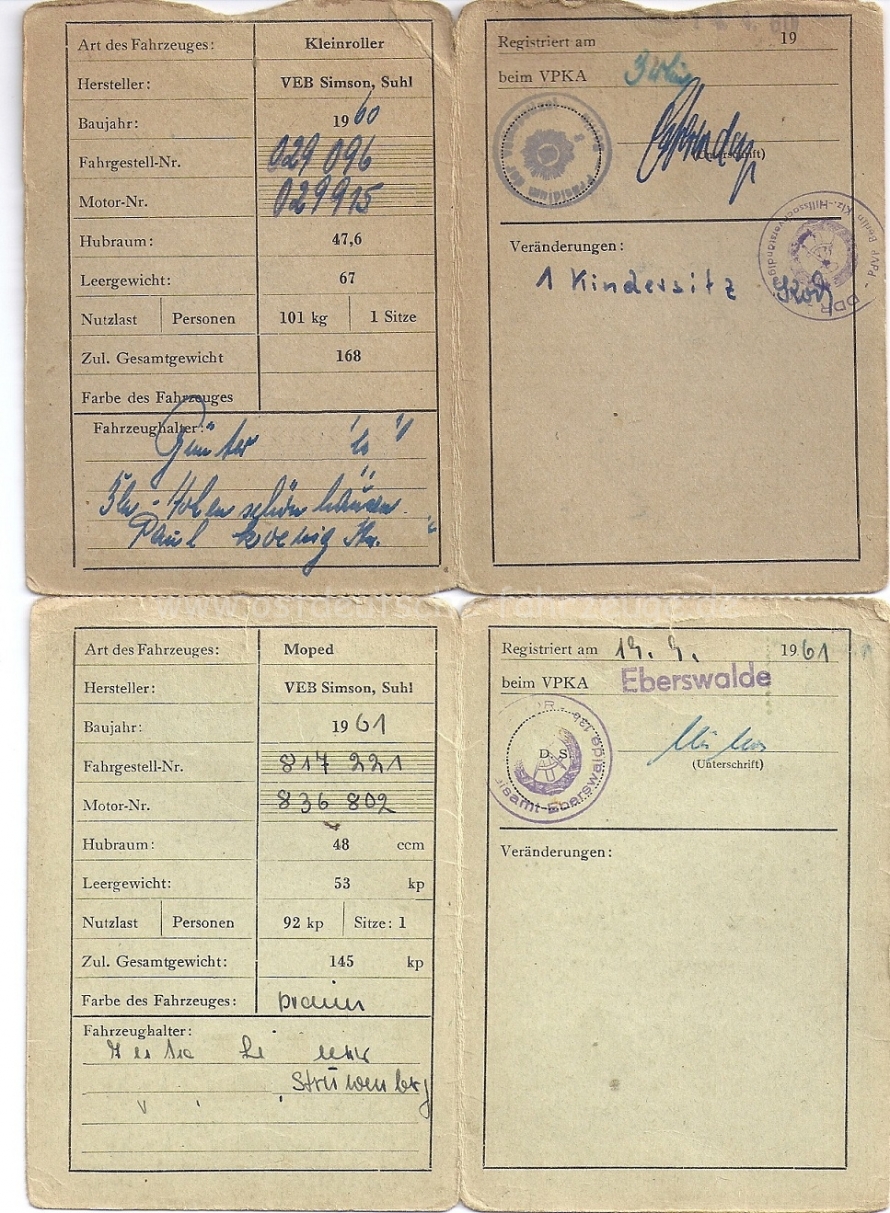 Art des Fahrzeuges: Kleinroller
Hersteller: VEB Simson, Suhl
Baujahr: 1960
Fahrgestell-Nr. 029 096
Motor-Nr. 029915
Hubraum: 47,6
Leergewicht: 67
Nutzlast Personen 101 kg 1 Sitze
Zul. Gesamtgewicht 168
Farbe des Fahrzeuges
Fahrzeughalter:
Günter
Bln - Hohenschönhausen
Paul Koenig Str.
Registriert am 19
beim VPKA
(Unterschrift)
Präsidium der
Veränderungen:
1 Kindersitz
DDR
www.ostdeutsche-fahrzeuge.de
Art des Fahrzeuges: Moped
Hersteller: VEB Simson, Suhl
Baujahr: 1961
Fahrgestell-Nr. 817 221
Motor-Nr. 836 802
Hubraum: 48 ccm
Leergewicht: 53 kp
Nutzlast Personen 92 kp Sitze: 1
Zul. Gesamtgewicht: 145 kp
Farbe des Fahrzeuges: braun
Fahrzeughalter:
Registriert am 1961
beim VPKA Eberswalde
D. S.
amt-Eberswalde
(Unterschrift)
Veränderungen: